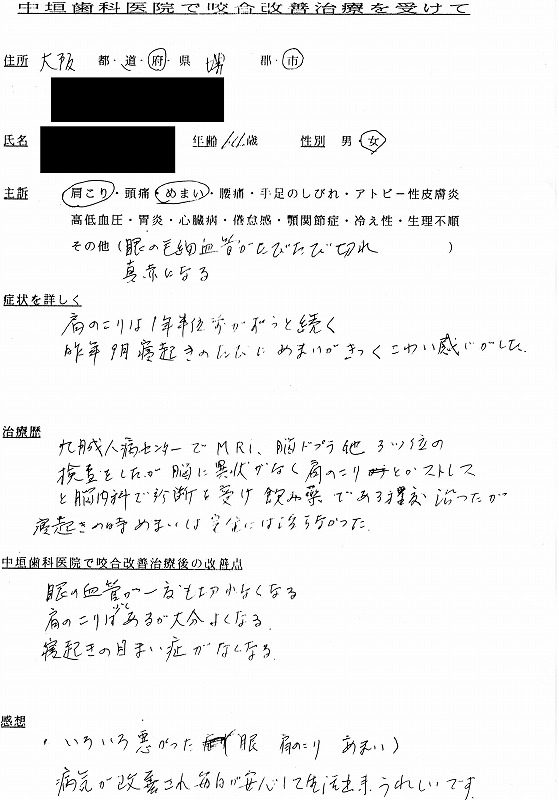 中垣歯科医院で咬合改善治療を受けて
住所 大阪 都・道・府・県 堺 郡・市
氏名 年齢 歳 性別 男・女
主訴 肩こり・頭痛・めまい・腰痛・手足のしびれ・アトピー性皮膚炎
高低血圧・胃炎・心臓病・倦怠感・顎関節症・冷え性・生理不順
その他（眼の毛細血管がたびたび切れ ）
真赤になる
症状を詳しく
肩のこりは1年半位前からずっと続く
昨年9月寝起きのたびにめまいがきつくこわい感じがした.
治療歴
成人病センターでMRi、脳ドプラ他 3ツ位の
検査をしたが脳に異状がなく肩のこりとかストレス
と脳内科で診断を受け飲み薬である程度治ったが
寝起きの時めまいは完全には治らなかった.
中垣歯科医院で咬合改善治療後の改善点
眼の血管が一度も切れなくなる
肩のこりは少しあるが大分よくなる.
寝起きの目まい症がなくなる.
感想
・いろいろ悪かった 眼 肩のこり めまい）
病気が改善され毎日が安心して生活出来うれしいです